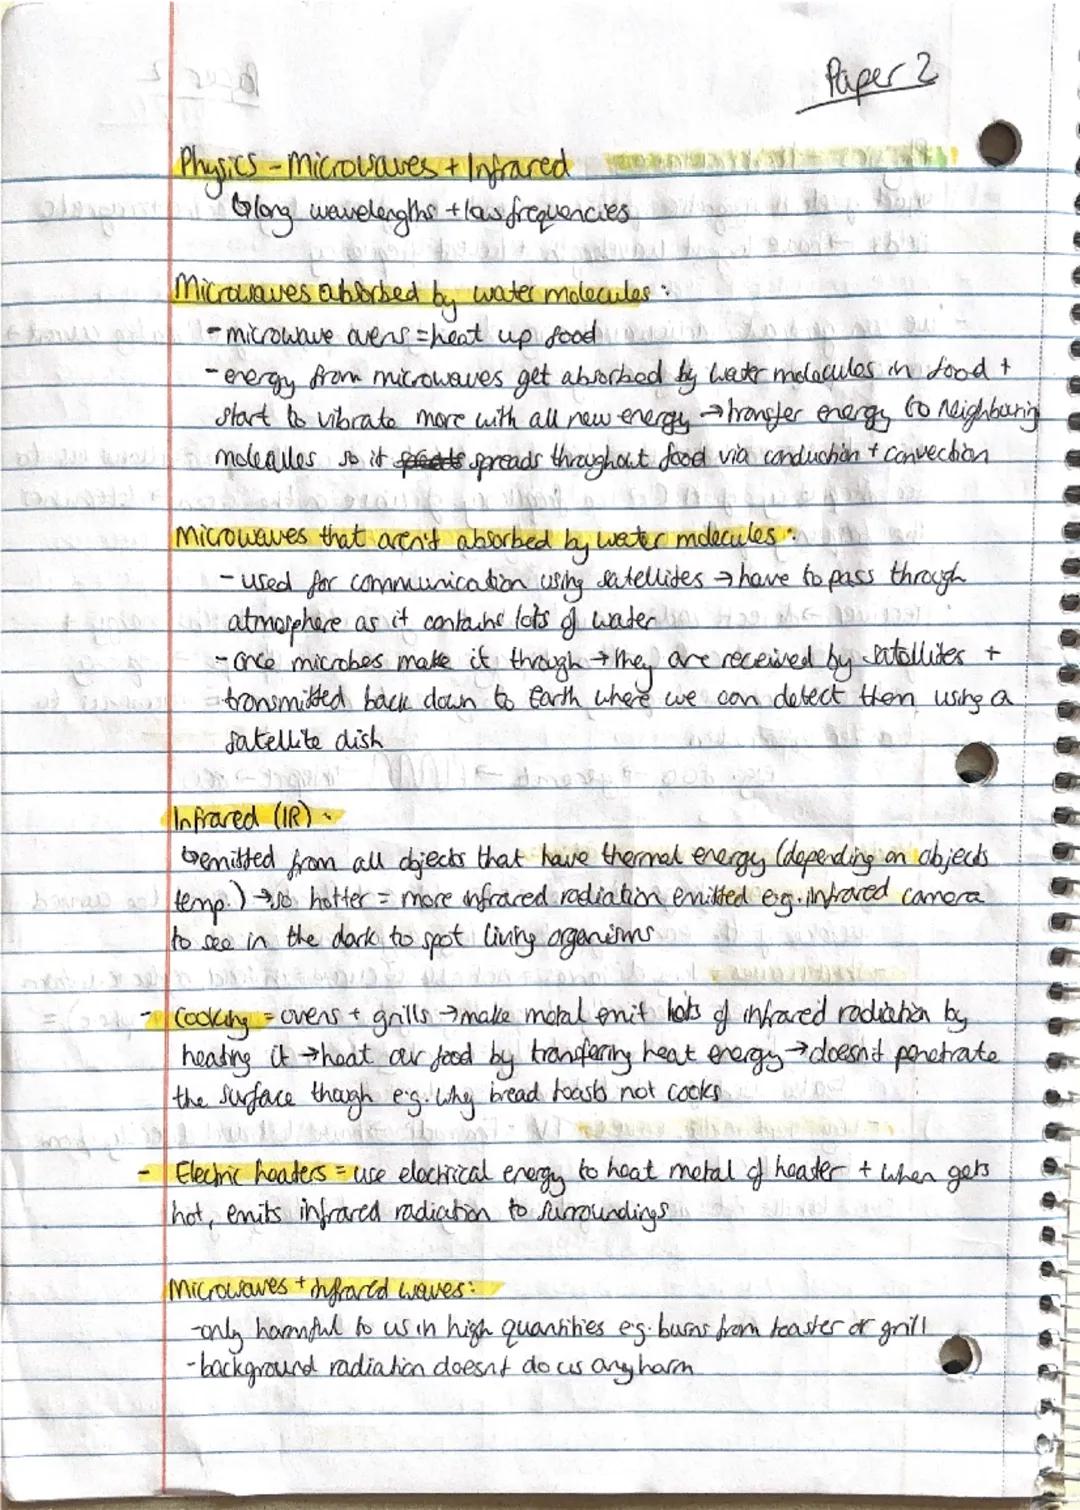 Paper 2
Physics - Microwaves + Infrared
↳ long wavelengths + low frequencies
Microwaves absorbed by water molecules :
- microwave ovens = heat up food
- energy from microwaves get absorbed by water molecules in food +
start to vibrate more with all new energy → transfer energy to neighbouring
molecules so it spreads throughout food via conduction + convection
Microwaves that aren't absorbed by water molecules :
- used for communication using satellites → have to pass through
atmosphere as it contains lots of water
- once microbes make it through → they are received by satellites +
transmitted back down to Earth where we can detect them using a
satellite dish
Infrared (IR) :
↳ emitted from all objects that have thermal energy (depending on objects
temp.) → so hotter = more infrared radiation emitted e.g. infrared camera
to see in the dark to spot living organisms
- Cooking = ovens + grills → make metal emit lots of infrared radiation by
heating it → heat our food by transfering heat energy → doesn't penetrate
the surface though e.g. why bread toasts not cooks
- Electric heaters = use electrical energy to heat metal of heater + when gets
hot, emits infrared radiation to surroundings
Microwaves + infrared waves :
- only harmful to us in high quantities e.g. burns from toaster or grill
- background radiation doesnt do us any harm